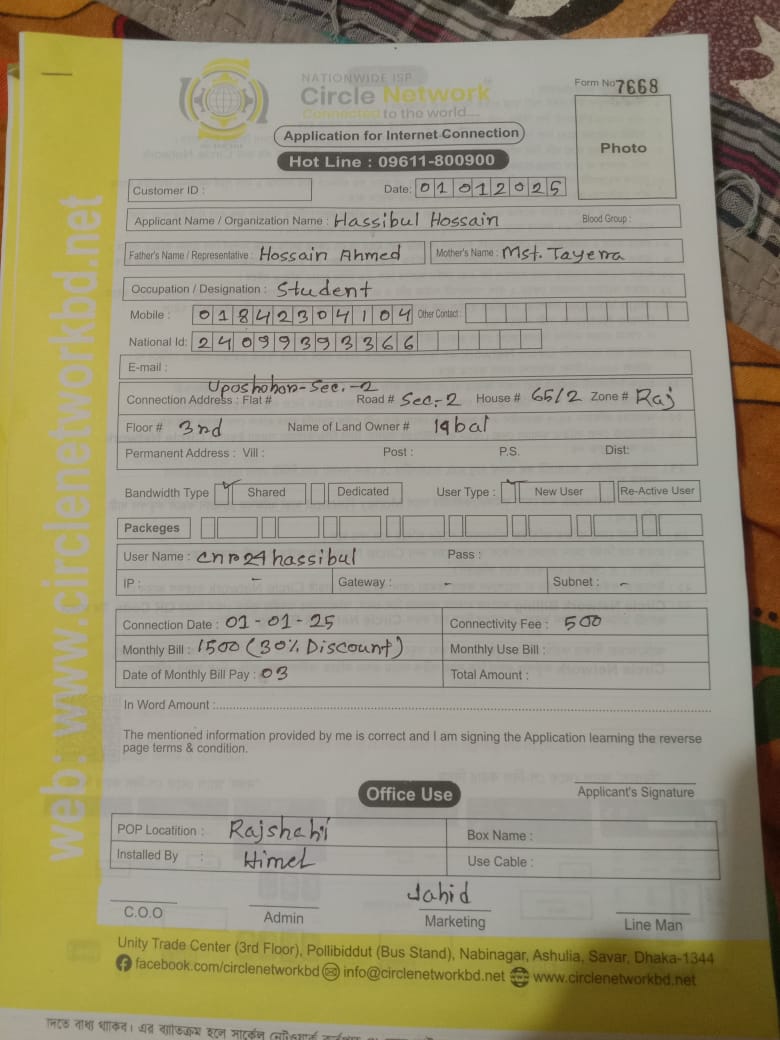 web: www.circlenetworkbd.net
NATIONWIDE ISP
Circle Network
Connected to the world....
Form No 7668
Application for Internet Connection
Photo
Hot Line : 09611-800900
Customer ID :
Date: 01012025
Applicant Name / Organization Name : Hassibul Hossain Blood Group :
Father's Name / Representative : Hossain Ahmed Mother's Name : Mst. Tayema
Occupation / Designation : Student
Mobile : 01842304104 Other Contact :
National Id: 24099393366
E-mail :
Uposhohon-Sec.-2
Connection Address : Flat # Road # Sec.-2 House # 65/2 Zone # Raj
Floor # 3rd Name of Land Owner # Iqbal
Permanent Address : Vill : Post : P.S. Dist:
Bandwidth Type Shared Dedicated User Type : New User Re-Active User
Packeges
User Name : cnr24hassibul Pass :
IP : - Gateway : - Subnet : -
Connection Date : 01-01-25 Connectivity Fee : 500
Monthly Bill : 1500 (30% Discount) Monthly Use Bill :
Date of Monthly Bill Pay : 03 Total Amount :
In Word Amount :
The mentioned information provided by me is correct and I am signing the Application learning the reverse
page terms & condition.
Applicant's Signature
Office Use
POP Locatition : Rajshahi Box Name :
Installed By : Himel Use Cable :
Jahid
C.O.O Admin Marketing Line Man
Unity Trade Center (3rd Floor), Pollibiddut (Bus Stand), Nabinagar, Ashulia, Savar, Dhaka-1344
facebook.com/circlenetworkbd info@circlenetworkbd.net www.circlenetworkbd.net
দিতে বাধ্য থাকিব। এর ব্যতিক্রম হলে সার্কেল নেটওয়ার্ক